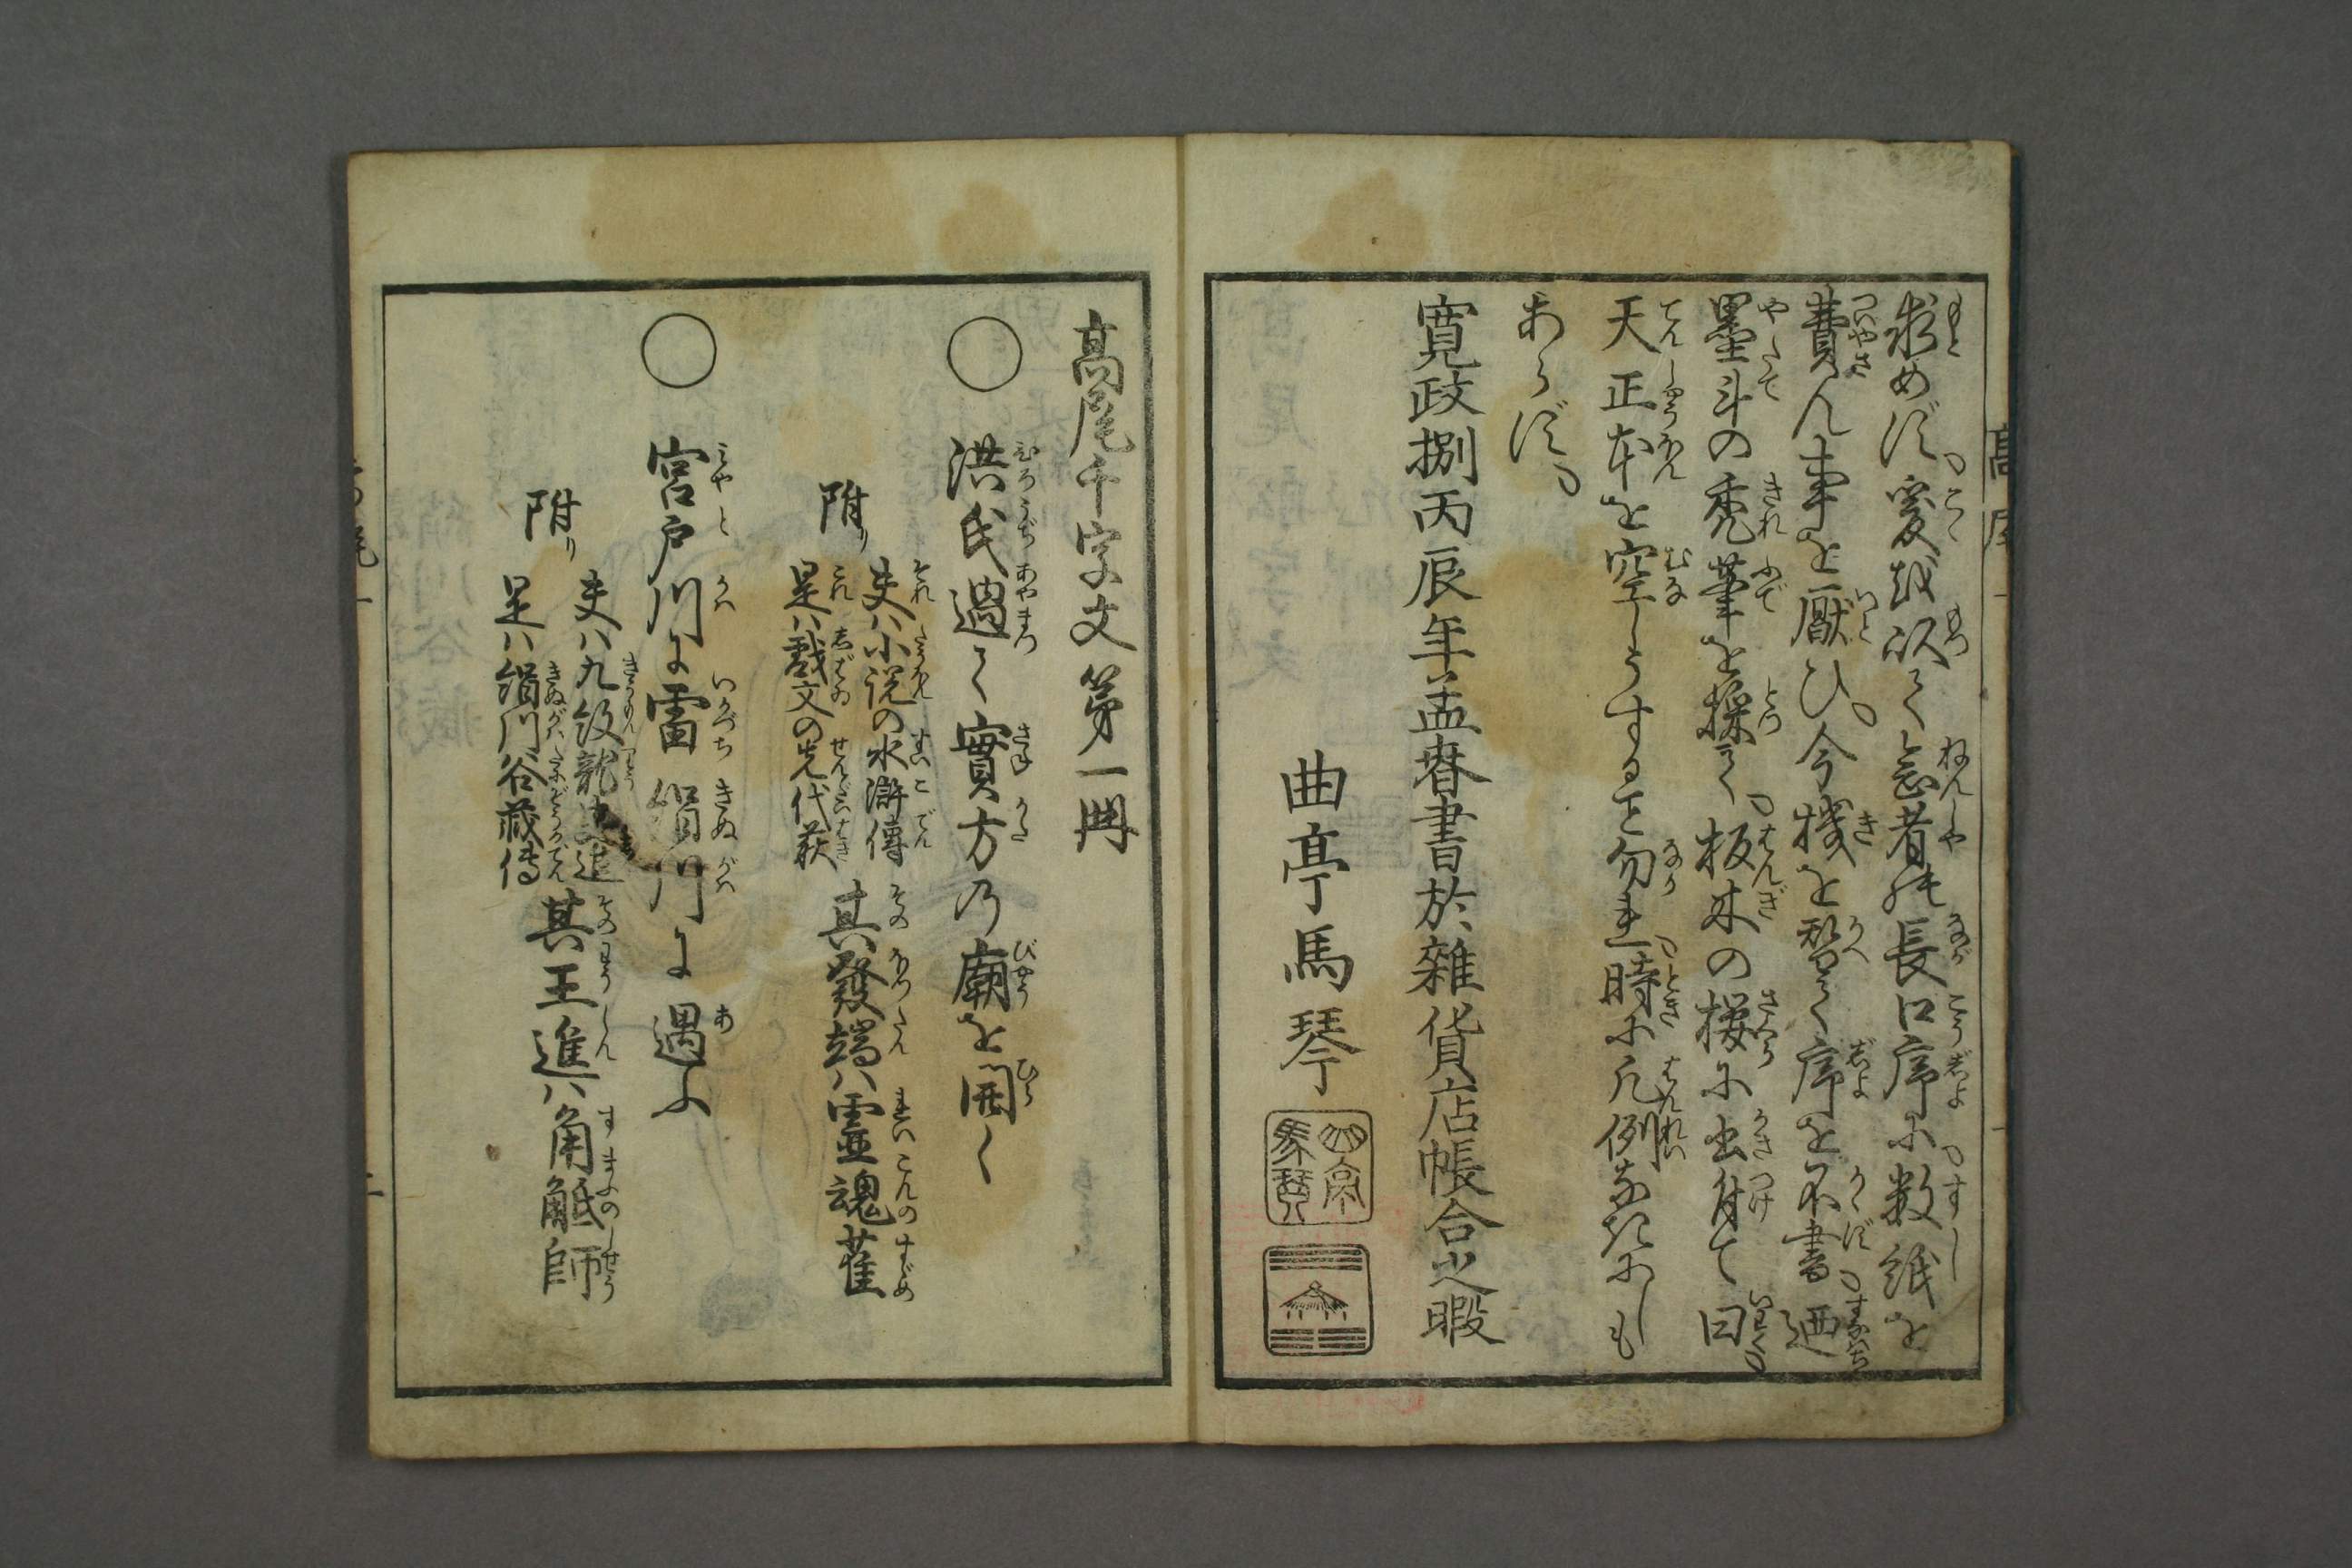 求めず爰越以て念者の長口序に数紙を
費ん事を厭ひ今機を智て序を不書廼
墨斗の禿筆を操て板木の桜に出付て曰
天正本を空しうすること勿れ時に凡例なきにしも
あらず
寛政捌丙辰年孟春書於雑貨店帳合之暇
曲亭馬琴
高尾千字文第一冊
○ 洪氏過て實方の廟を開く
附り
夫ハ小説の水滸傳
是ハ戯文の先代萩
其發端ハ霊魂雀
○ 宮戸川に雷絹川に遇ふ
附り
夫ハ九紋龍史進
是ハ絹川谷蔵傳
其王進ハ角觝師